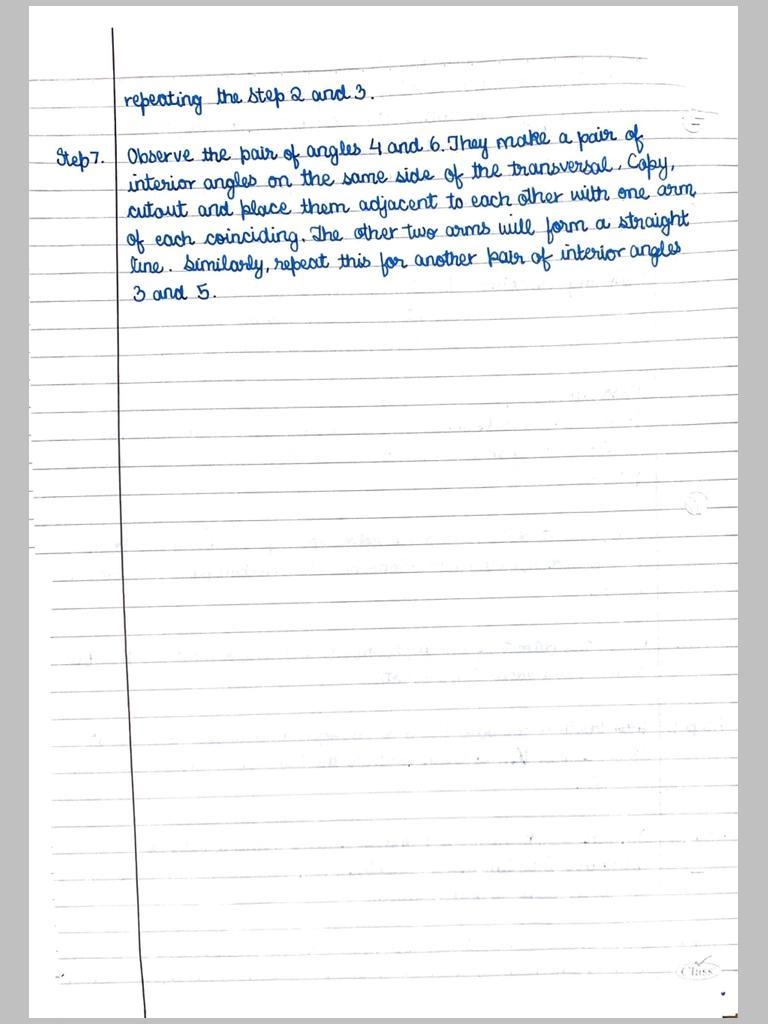 repeating the step 2 and 3.
Step 7. Observe the pair of angles 4 and 6. They make a pair of
interior angles on the same side of the transversal. Copy,
cutout and place them adjacent to each other with one arm
of each coinciding. The other two arms will form a straight
line. Similarly, repeat this for another pair of interior angles
3 and 5.
Class